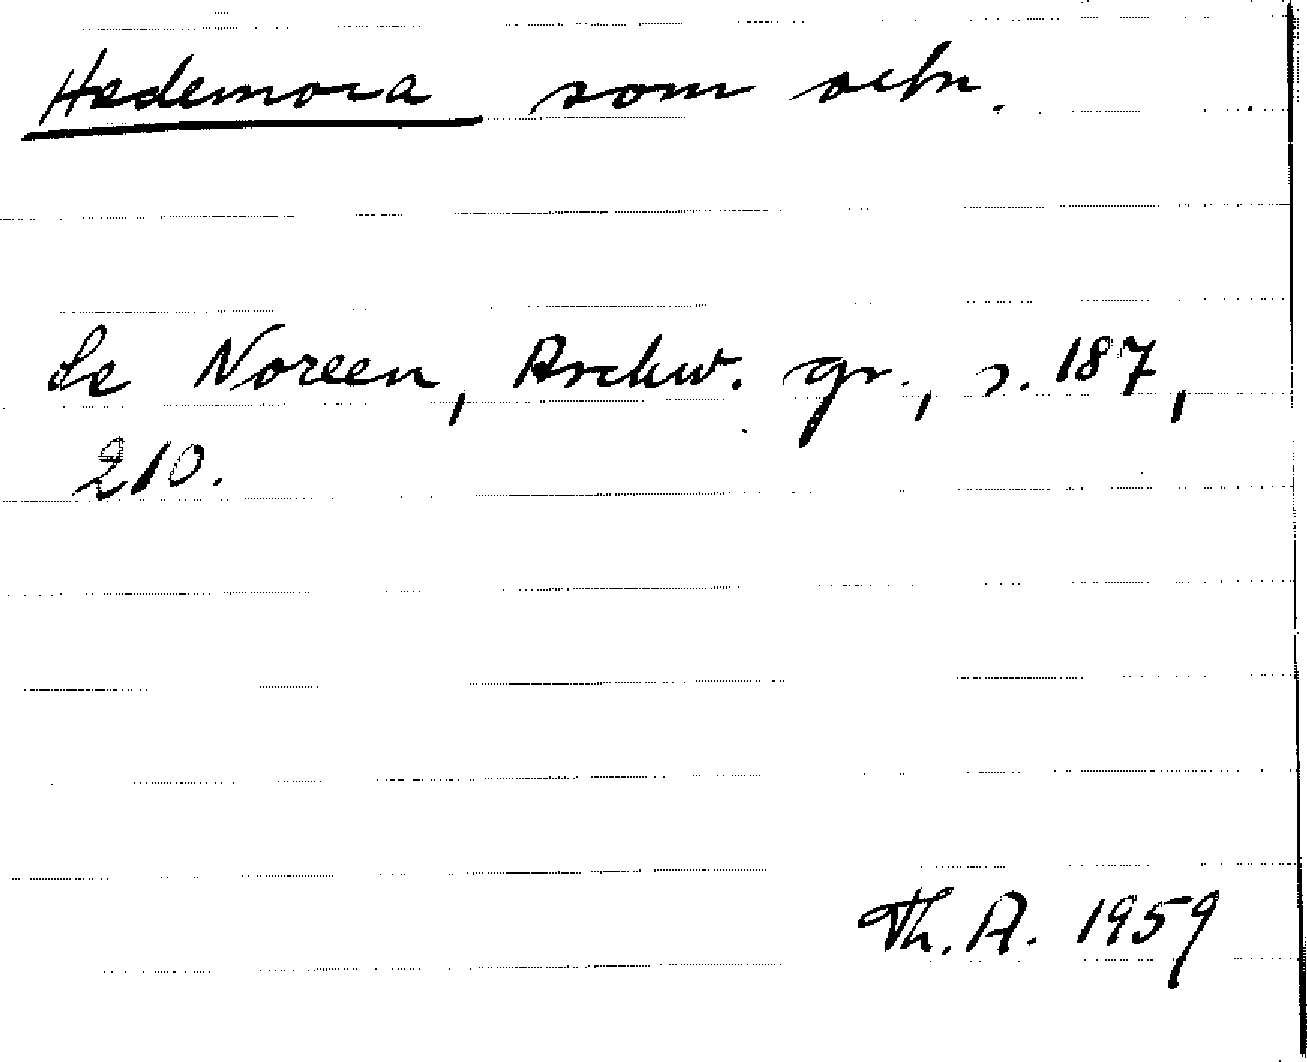 Hedemora som ortn.
Se Noreen, Aschw. gr., s. 187,
210.
Th. A. 1959